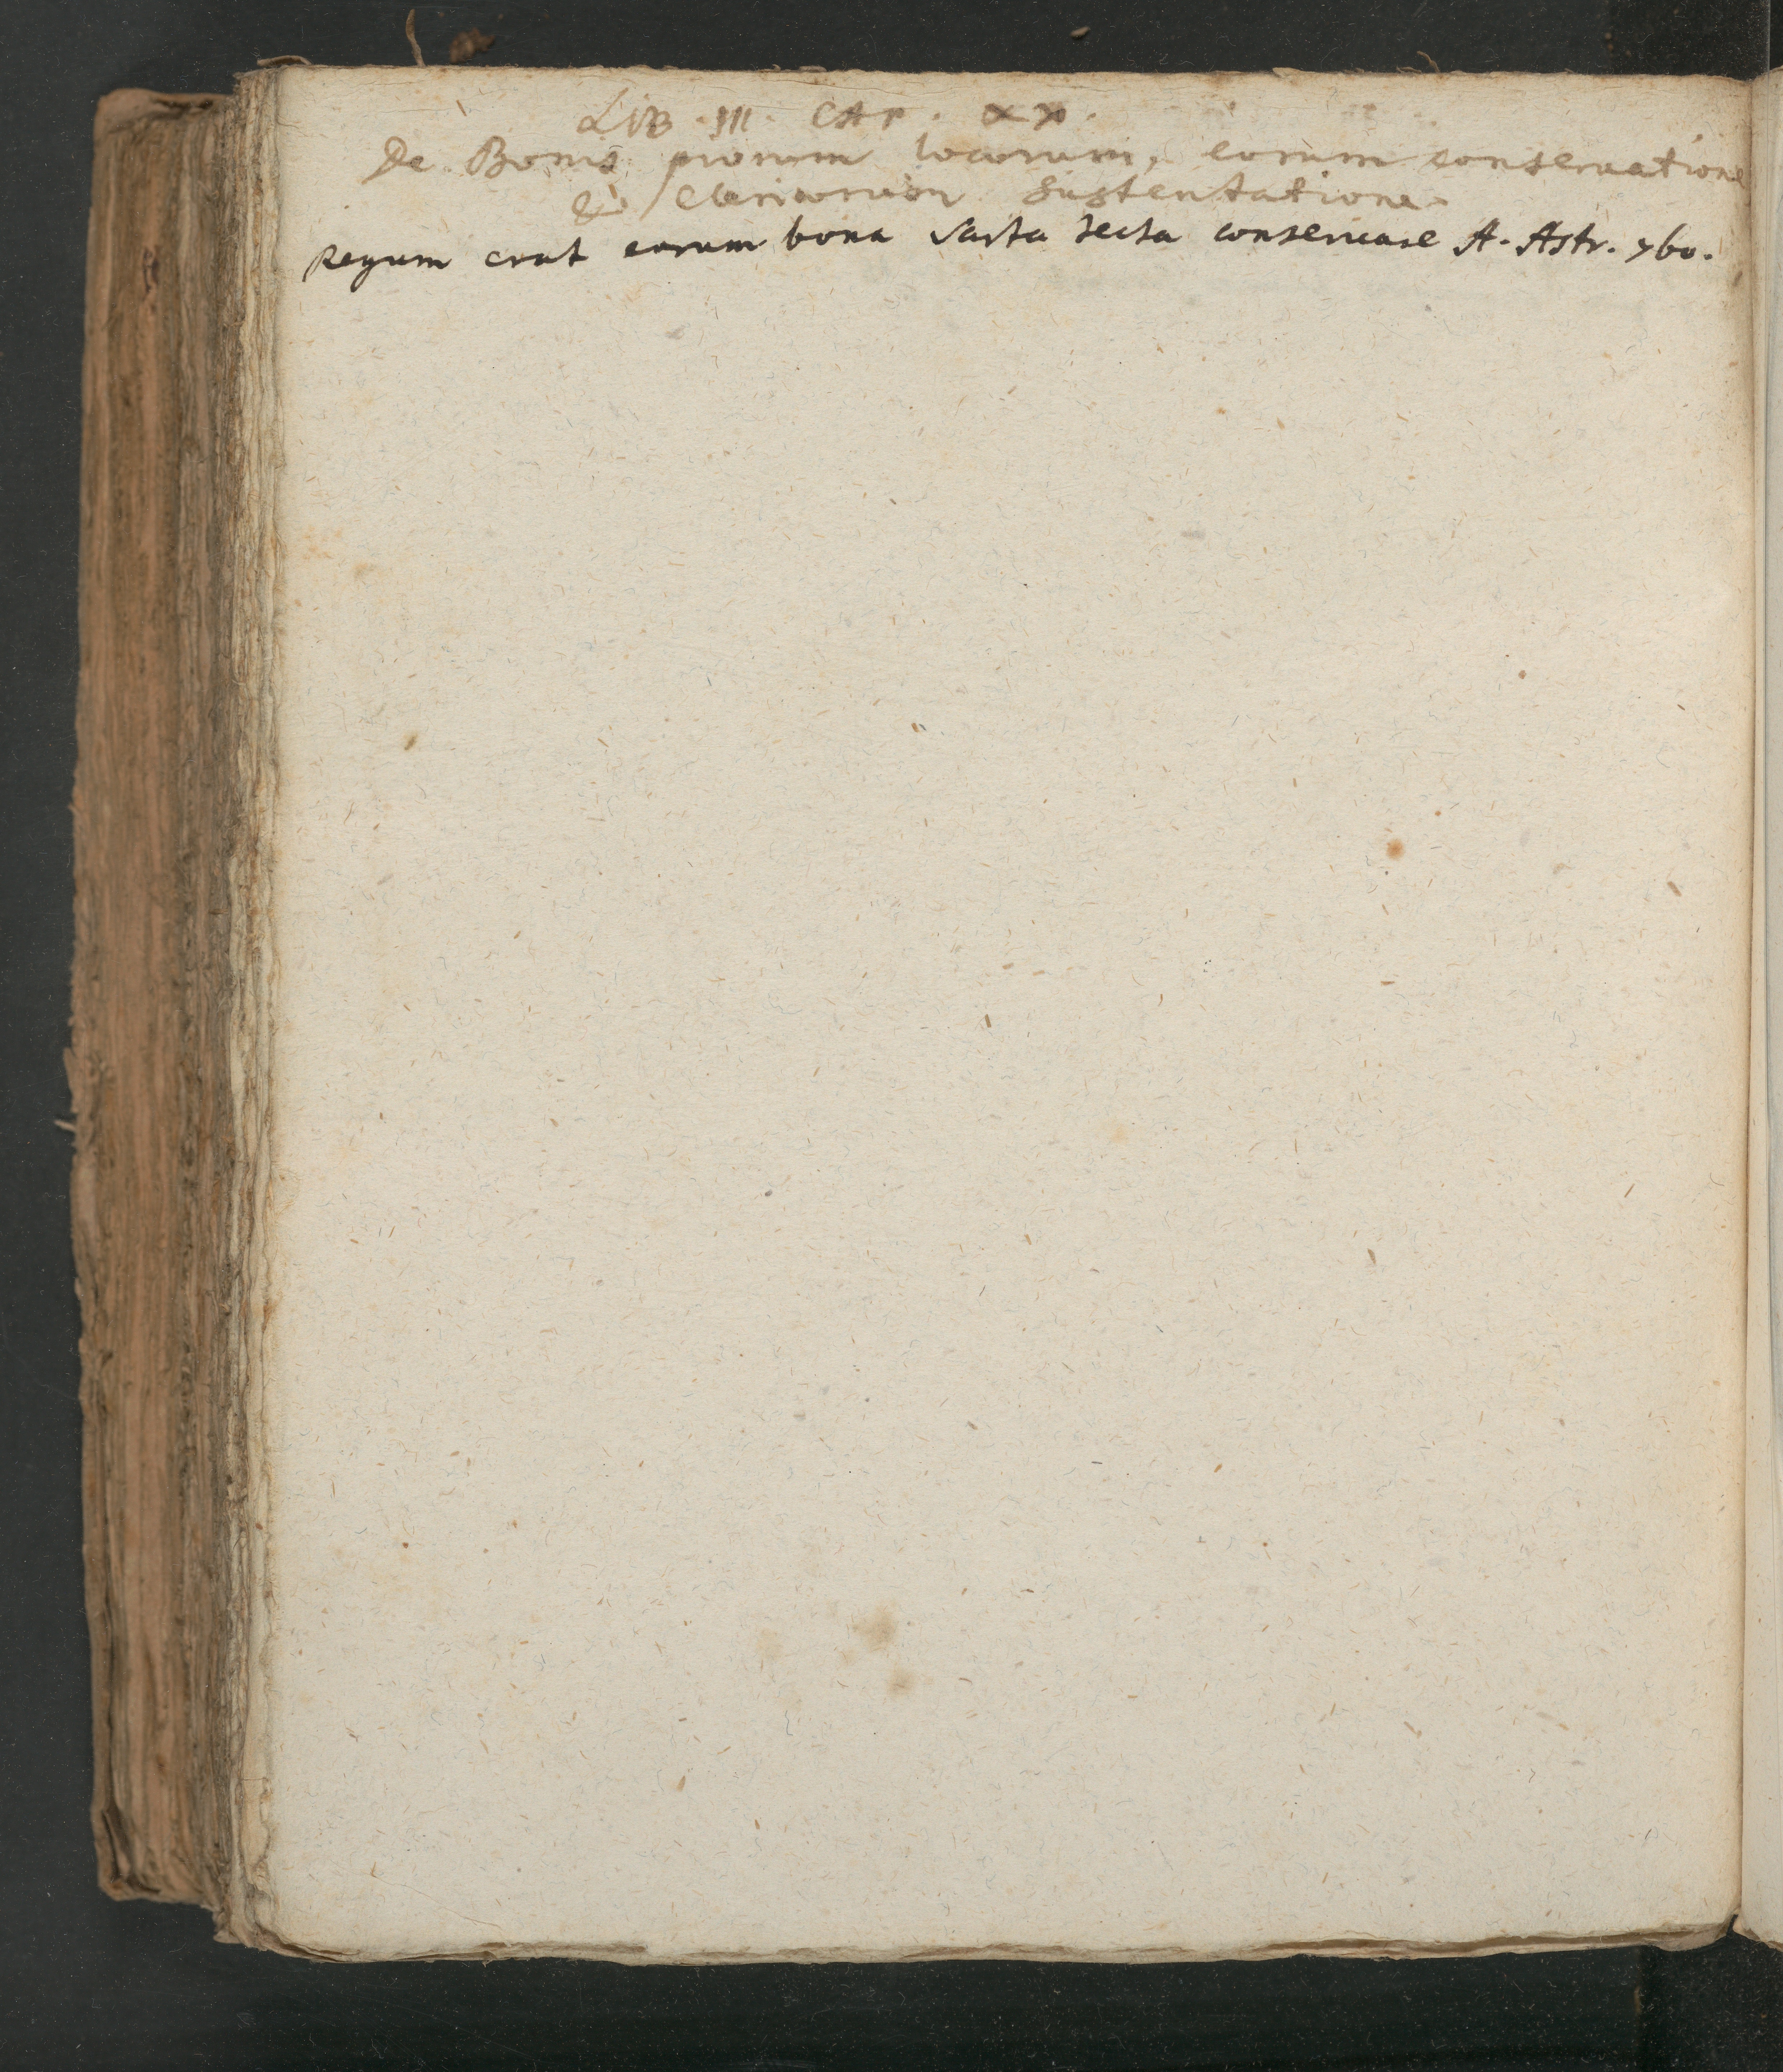 LIB. III. CAP. XX.
De Bonis piorum locorum, eorum conseruatione
& Clericorum sustentatione.
Regum erat eorum bona sarta tecta conseruare A. Astr. 760.